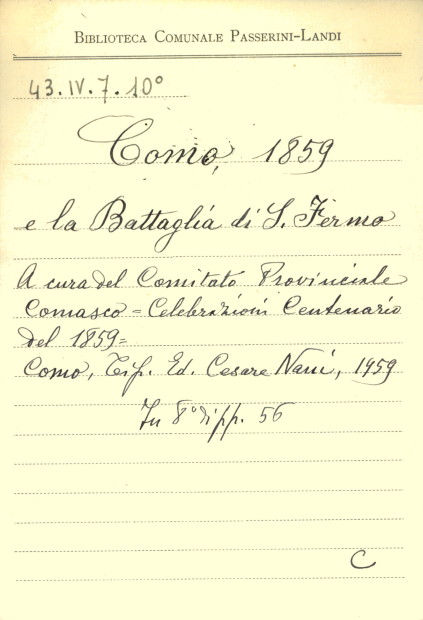 BIBLIOTECA COMUNALE PASSERINI-LANDI
43.IV.7.10°
Como, 1859
e la Battaglia di S. Fermo
A cura del Comitato Provinciale
Comasco = Celebrazioni Centenario
del 1859=
Como, Tip. Ed. Cesare Nani, 1959
In 8° di pp. 56
C